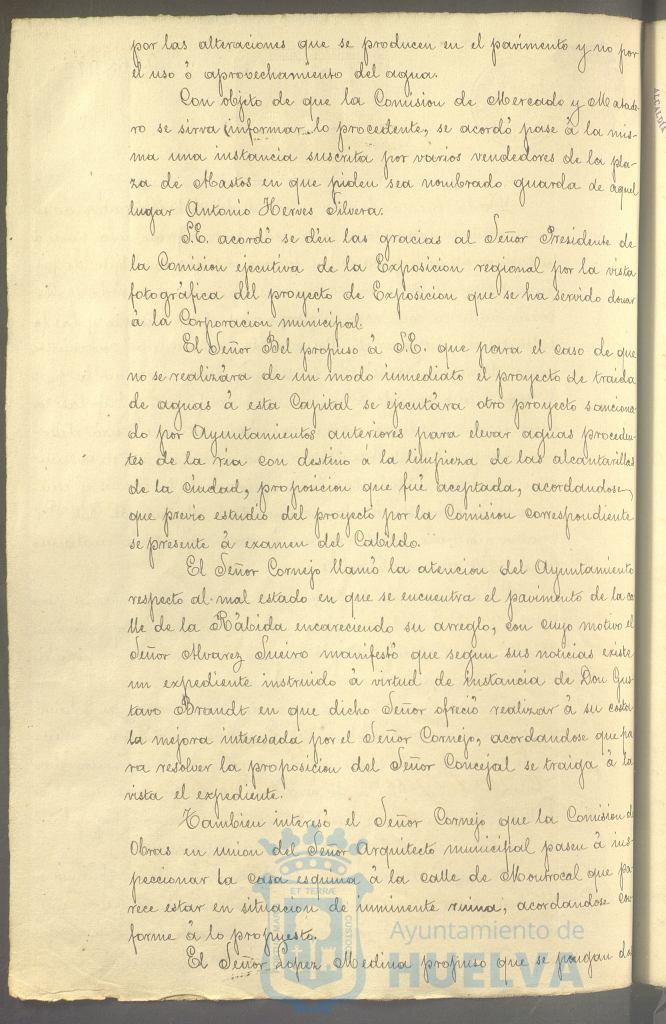 por las alteraciones que se producen en el pavimento y no por
el uso ó aprovechamiento del agua.
Con objeto de que la Comision de Mercado y Matade-
ro se sirva informar lo procedente, se acordó pase á la mis-
ma una instancia suscrita por varios vendedores de la pla-
za de Abastos en que piden sea nombrado guarda de aquel
lugar Antonio Herves Silvera.
S.E. acordó se dén las gracias al Señor Presidente de
la Comision ejecutiva de la Exposicion regional por la vista
fotográfica del proyecto de Exposicion que se ha servido donar
á la Corporacion municipal.
El Señor Bel propuso á S.E. que para el caso de que
no se realizára de un modo inmediato el proyecto de traida
de aguas á esta Capital se ejecutára otro proyecto sanciona-
do por Ayuntamientos anteriores para elevar aguas proceden-
tes de la ria con destino á la limpieza de las alcantarillas
de la ciudad, proposicion que fué aceptada, acordandose,
que previo estudio del proyecto por la Comision correspondiente
se presente á examen del Cabildo.
El Señor Cornejo llamó la atencion del Ayuntamiento
respecto al mal estado en que se encuentra el pavimento de la ca
lle de la Rábida encareciendo su arreglo, con cuyo motivo el
Señor Alvarez Sueiro manifestó que segun sus noticias existe
un expediente instruido á virtud de instancia de Don Gus-
tavo Brandt en que dicho Señor ofreció realizar á su costa
la mejora interesada por el Señor Cornejo, acordandose que pa
ra resolver la proposicion del Señor Concejal se traiga á la
vista el expediente.
Tambien interesó el Señor Cornejo que la Comision de
Obras en union del Señor Arquitecto municipal pasen á ins-
peccionar la casa esquina á la calle de Monrocal que pa-
rece estar en situacion de inminente ruina, acordandose con
forme á lo propuesto.
El Señor Lopez Medina propuso que se pongan dos
ET TERRÆ
CUSTODIA
Ayuntamiento de
HUELVA
ALCALDÍA